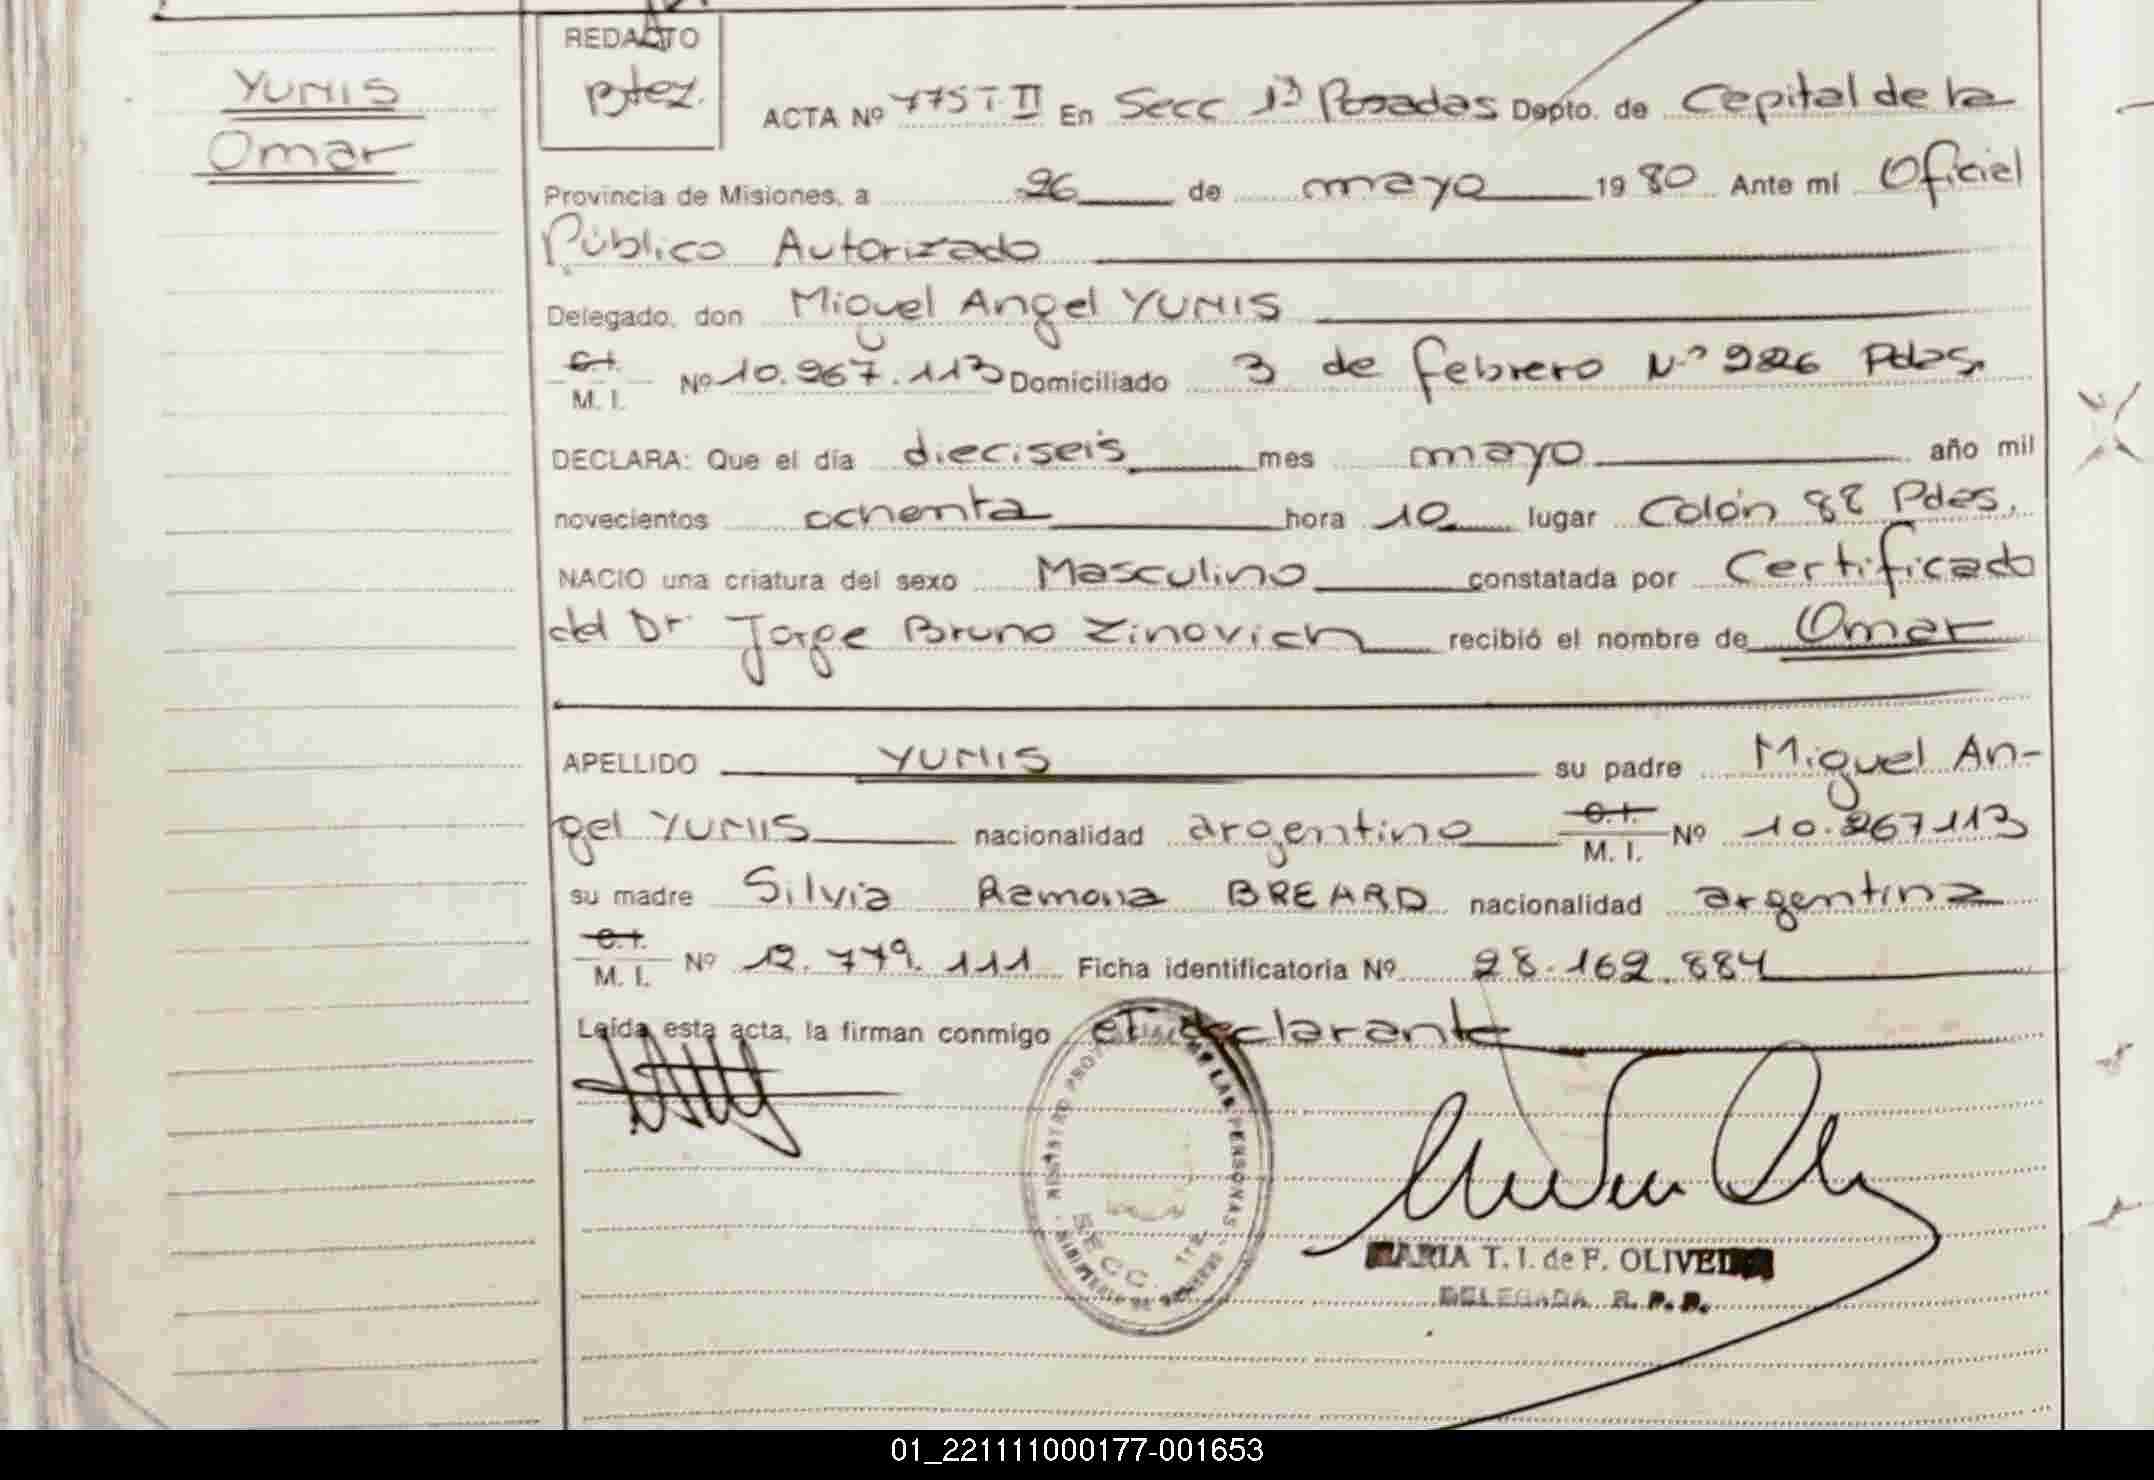 YUNIS
Omar
REDACTO
Btez.
ACTA Nº 775 T. II En Secc 1ª Posadas Depto. de Capital de la
Provincia de Misiones, a 26 de mayo 1980 Ante mí Oficial
Público Autorizado
Delegado, don Miguel Angel YUNIS
C.I.
M. I. Nº 10.967.113 Domiciliado 3 de febrero Nº 2226 Pdas.
DECLARA: Que el día dieciseis mes mayo año mil
novecientos ochenta hora 10 lugar Colón 88 Pdas.
NACIO una criatura del sexo Masculino constatada por Certificado
del Dr Jorge Bruno Zinovich recibió el nombre de Omar
APELLIDO YUNIS su padre Miguel An-
gel YUNIS nacionalidad argentino C.I. M. I. Nº 10.967113
su madre Silvia Ramona BREARD nacionalidad argentina
C.I.
M. I. Nº 12.779.111 Ficha identificatoria Nº 28.162.884
Leída esta acta, la firman conmigo el declarante
LAS PERSONAS
SECC. 1ra
MARIA T. I. de F. OLIVEIRA
DELEGADA R. P. P.
01_221111000177-001653